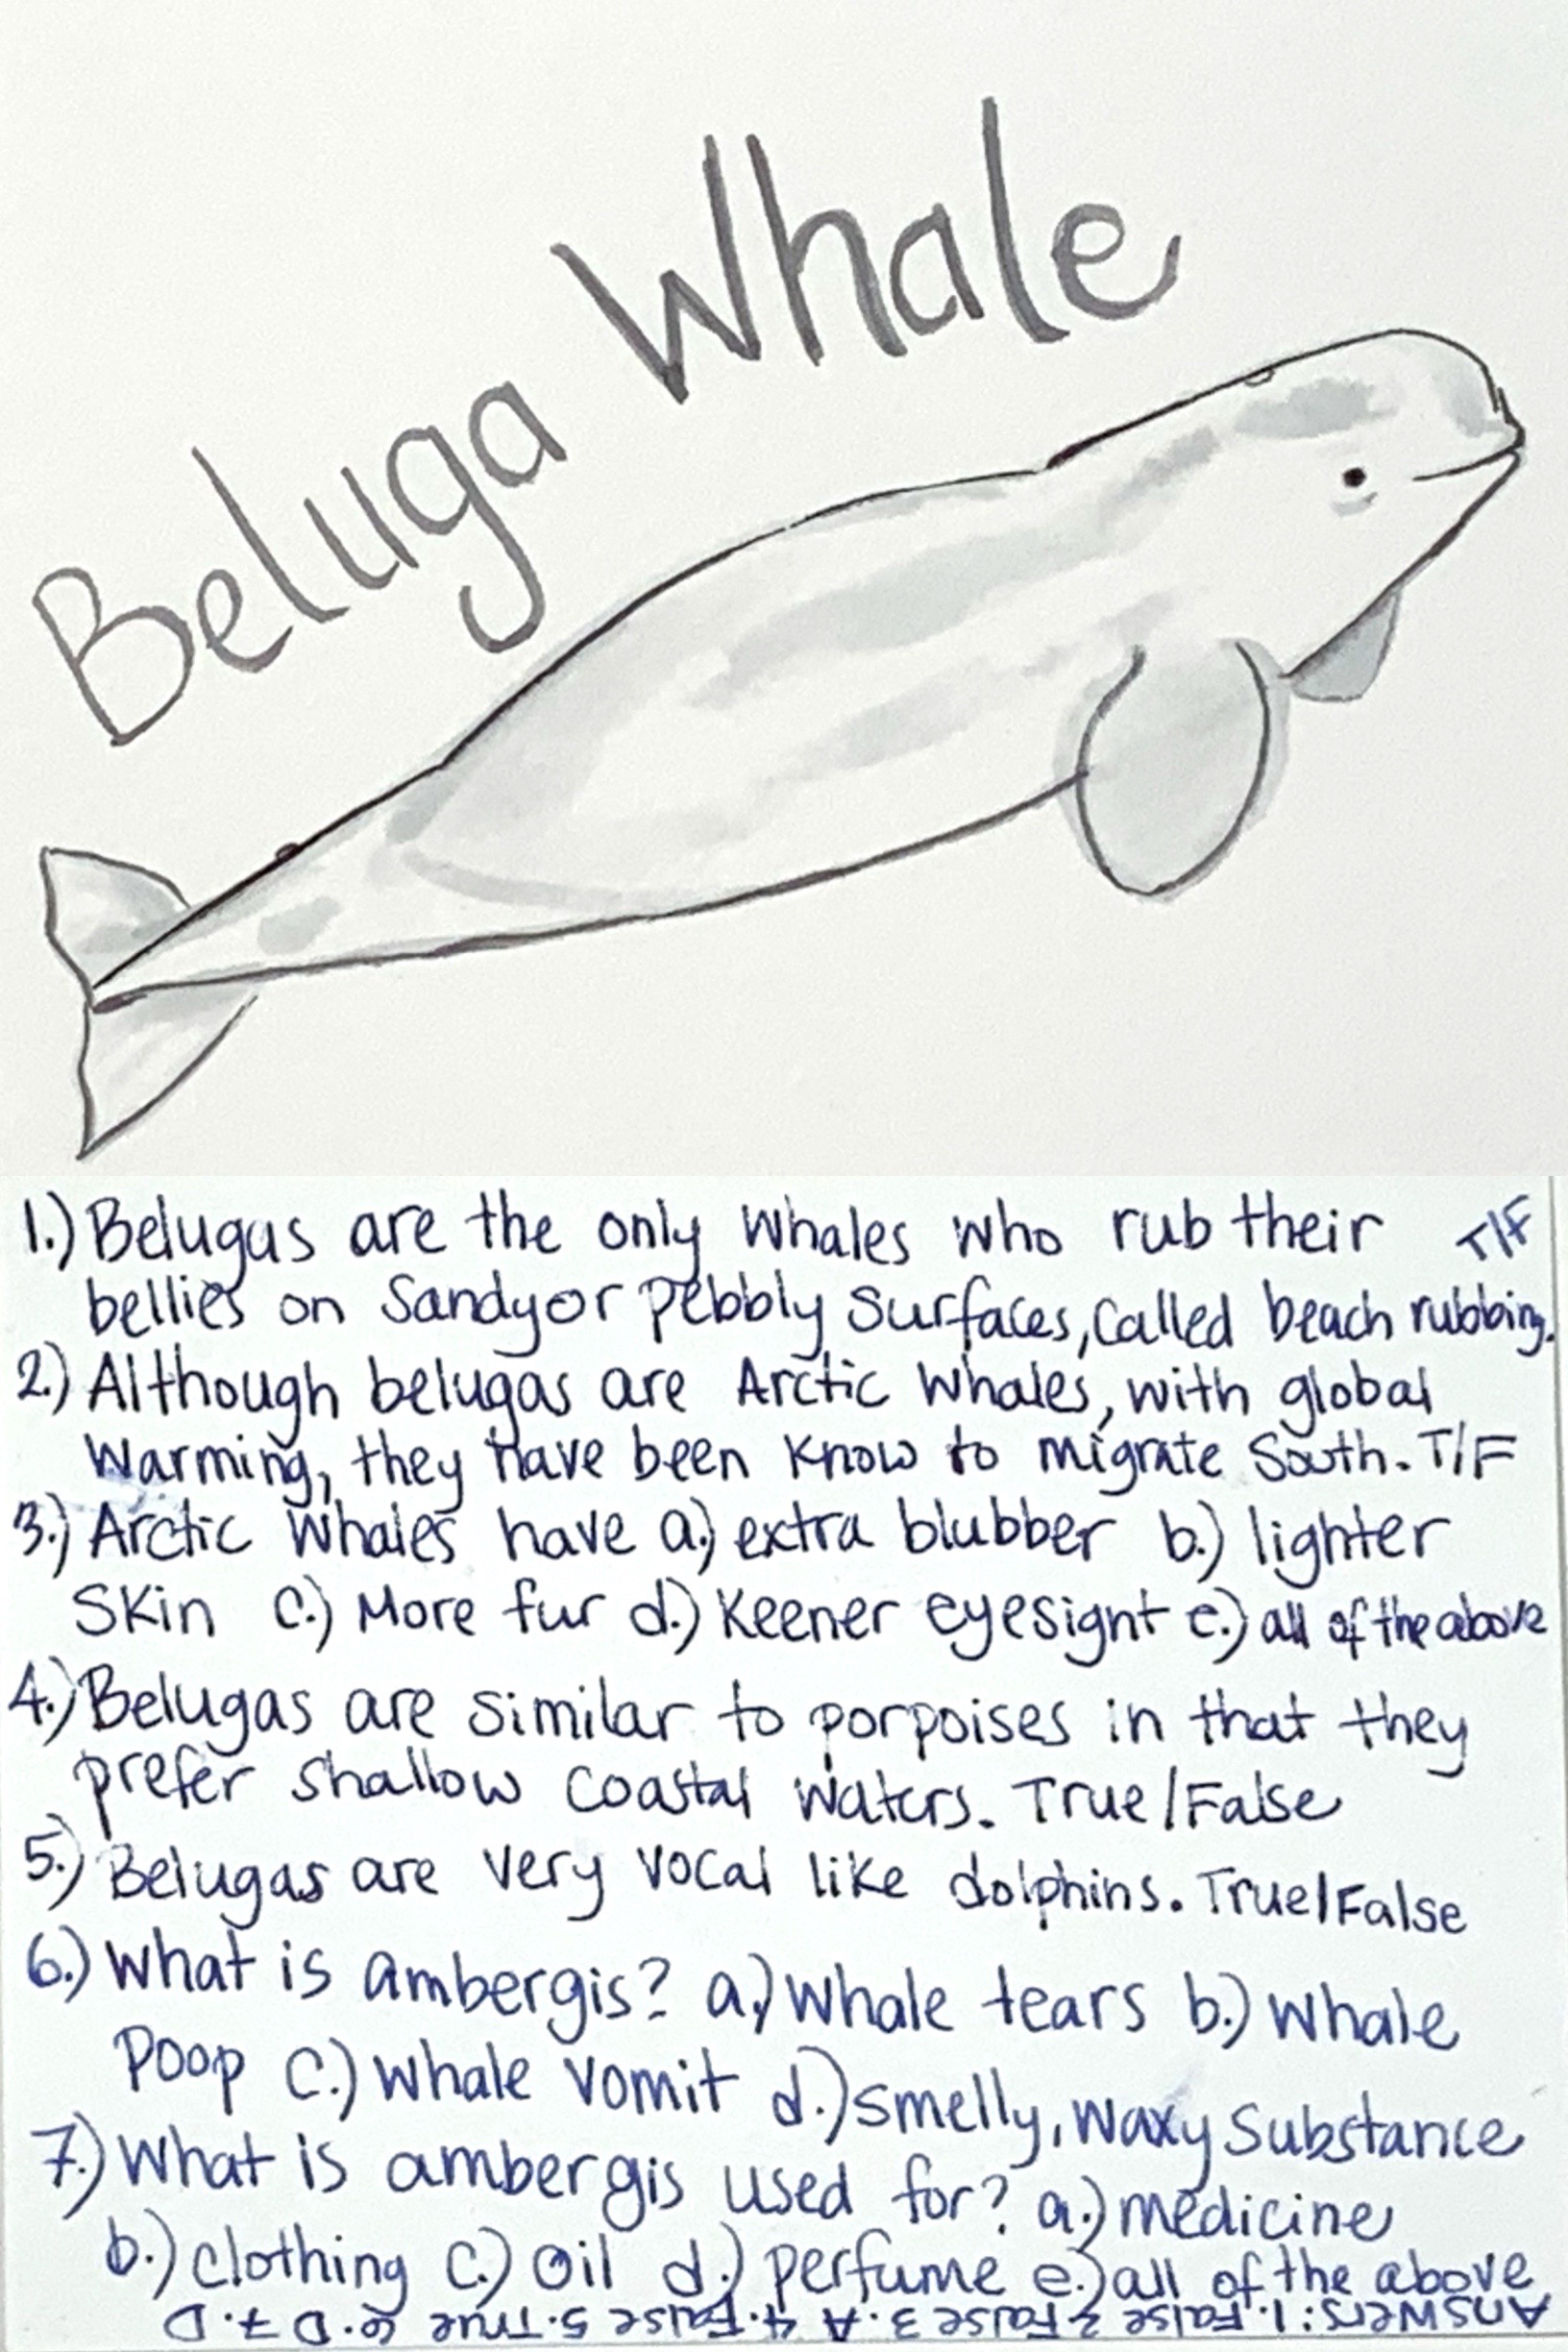 Beluga Whale
1.) Belugas are the only whales who rub their T/F
bellies on Sandy or pebbly surfaces, called beach rubbing.
2.) Although belugas are Arctic whales, with global
warming, they have been know to migrate South. T/F
3.) Arctic whales have a.) extra blubber b.) lighter
skin c.) More fur d.) Keener eyesignt e.) all of the above
4.) Belugas are similar to porpoises in that they
prefer shallow coastal waters. True/False
5.) Belugas are very vocal like dolphins. True/False
6.) What is ambergis? a.) Whale tears b.) Whale
Poop c.) Whale vomit d.) smelly, waxy substance
7.) What is ambergis used for? a.) medicine
b.) clothing c.) oil d.) perfume e.) all of the above
Answers: 1. False 2 False 3. A 4. False 5. True 6. D 7. D